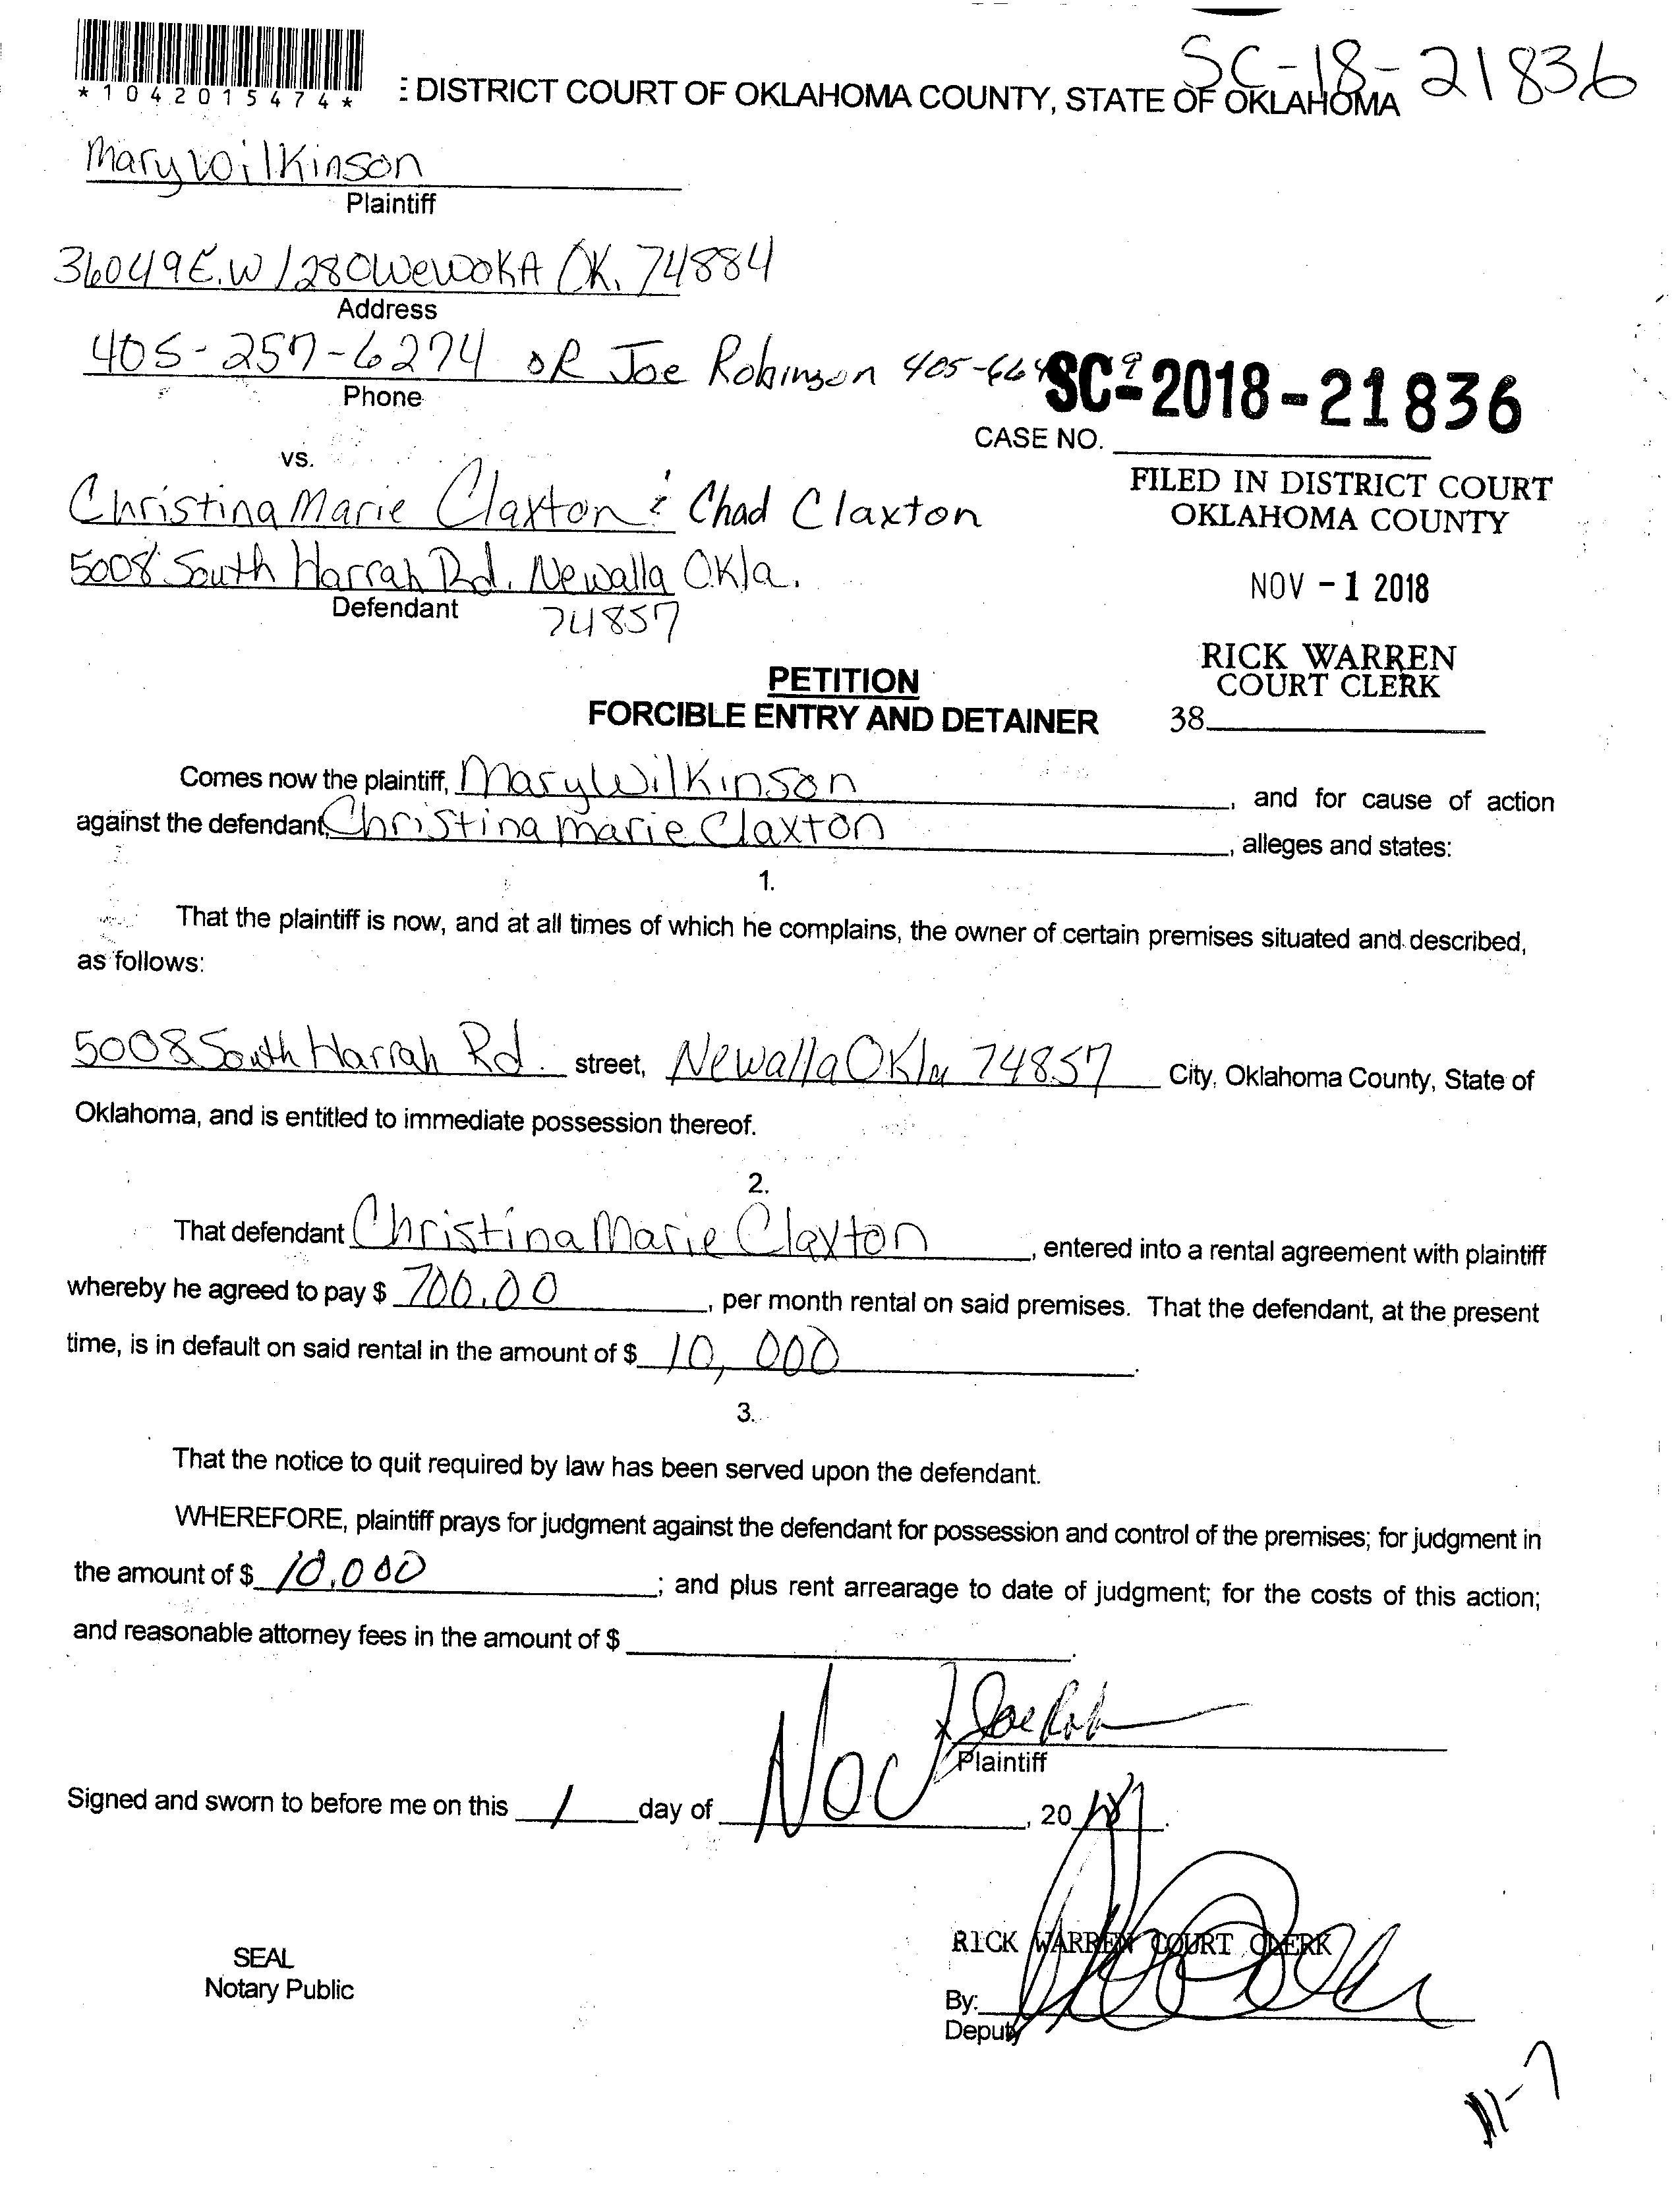 SC-18-21836
*1042015474*
DISTRICT COURT OF OKLAHOMA COUNTY, STATE OF OKLAHOMA
Mary Wilkinson
Plaintiff
36049 E.W 1280 Wewoka OK. 74884
Address
405-257-6274 OR Joe Robinson 405-
Phone
SC-2018-21836
CASE NO.
vs.
Christina Marie Claxton & Chad Claxton
5008 South Harrah Rd. Newalla Okla.
Defendant 74857
FILED IN DISTRICT COURT
OKLAHOMA COUNTY
NOV - 1 2018
RICK WARREN
COURT CLERK
38
PETITION
FORCIBLE ENTRY AND DETAINER
Comes now the plaintiff, Mary Wilkinson, and for cause of action
against the defendant, Christina Marie Claxton, alleges and states:
1.
That the plaintiff is now, and at all times of which he complains, the owner of certain premises situated and described,
as follows:
5008 South Harrah Rd. street, Newalla Okla 74857 City, Oklahoma County, State of
Oklahoma, and is entitled to immediate possession thereof.
2.
That defendant Christina Marie Claxton, entered into a rental agreement with plaintiff
whereby he agreed to pay $ 700.00, per month rental on said premises. That the defendant, at the present
time, is in default on said rental in the amount of $ 10,000.
3.
That the notice to quit required by law has been served upon the defendant.
WHEREFORE, plaintiff prays for judgment against the defendant for possession and control of the premises; for judgment in
the amount of $ 10,000; and plus rent arrearage to date of judgment; for the costs of this action;
and reasonable attorney fees in the amount of $ .
x Joe Rob
Plaintiff
Signed and sworn to before me on this 1 day of Nov, 2018.
SEAL
Notary Public
RICK WARREN COURT CLERK
By:
Deputy
11-7